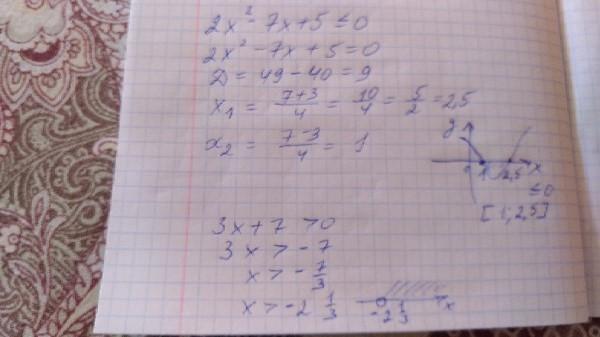 2x² - 7x + 5 ≤ 0
2x² - 7x + 5 = 0
D = 49 - 40 = 9
x₁ = (7+3)/4 = 10/4 = 5/2 = 2,5
x₂ = (7-3)/4 = 1
y
1 2,5 x
≤0
[1; 2,5]
3x + 7 > 0
3x > -7
x > -7/3
x > -2 1/3
-2 1/3 x